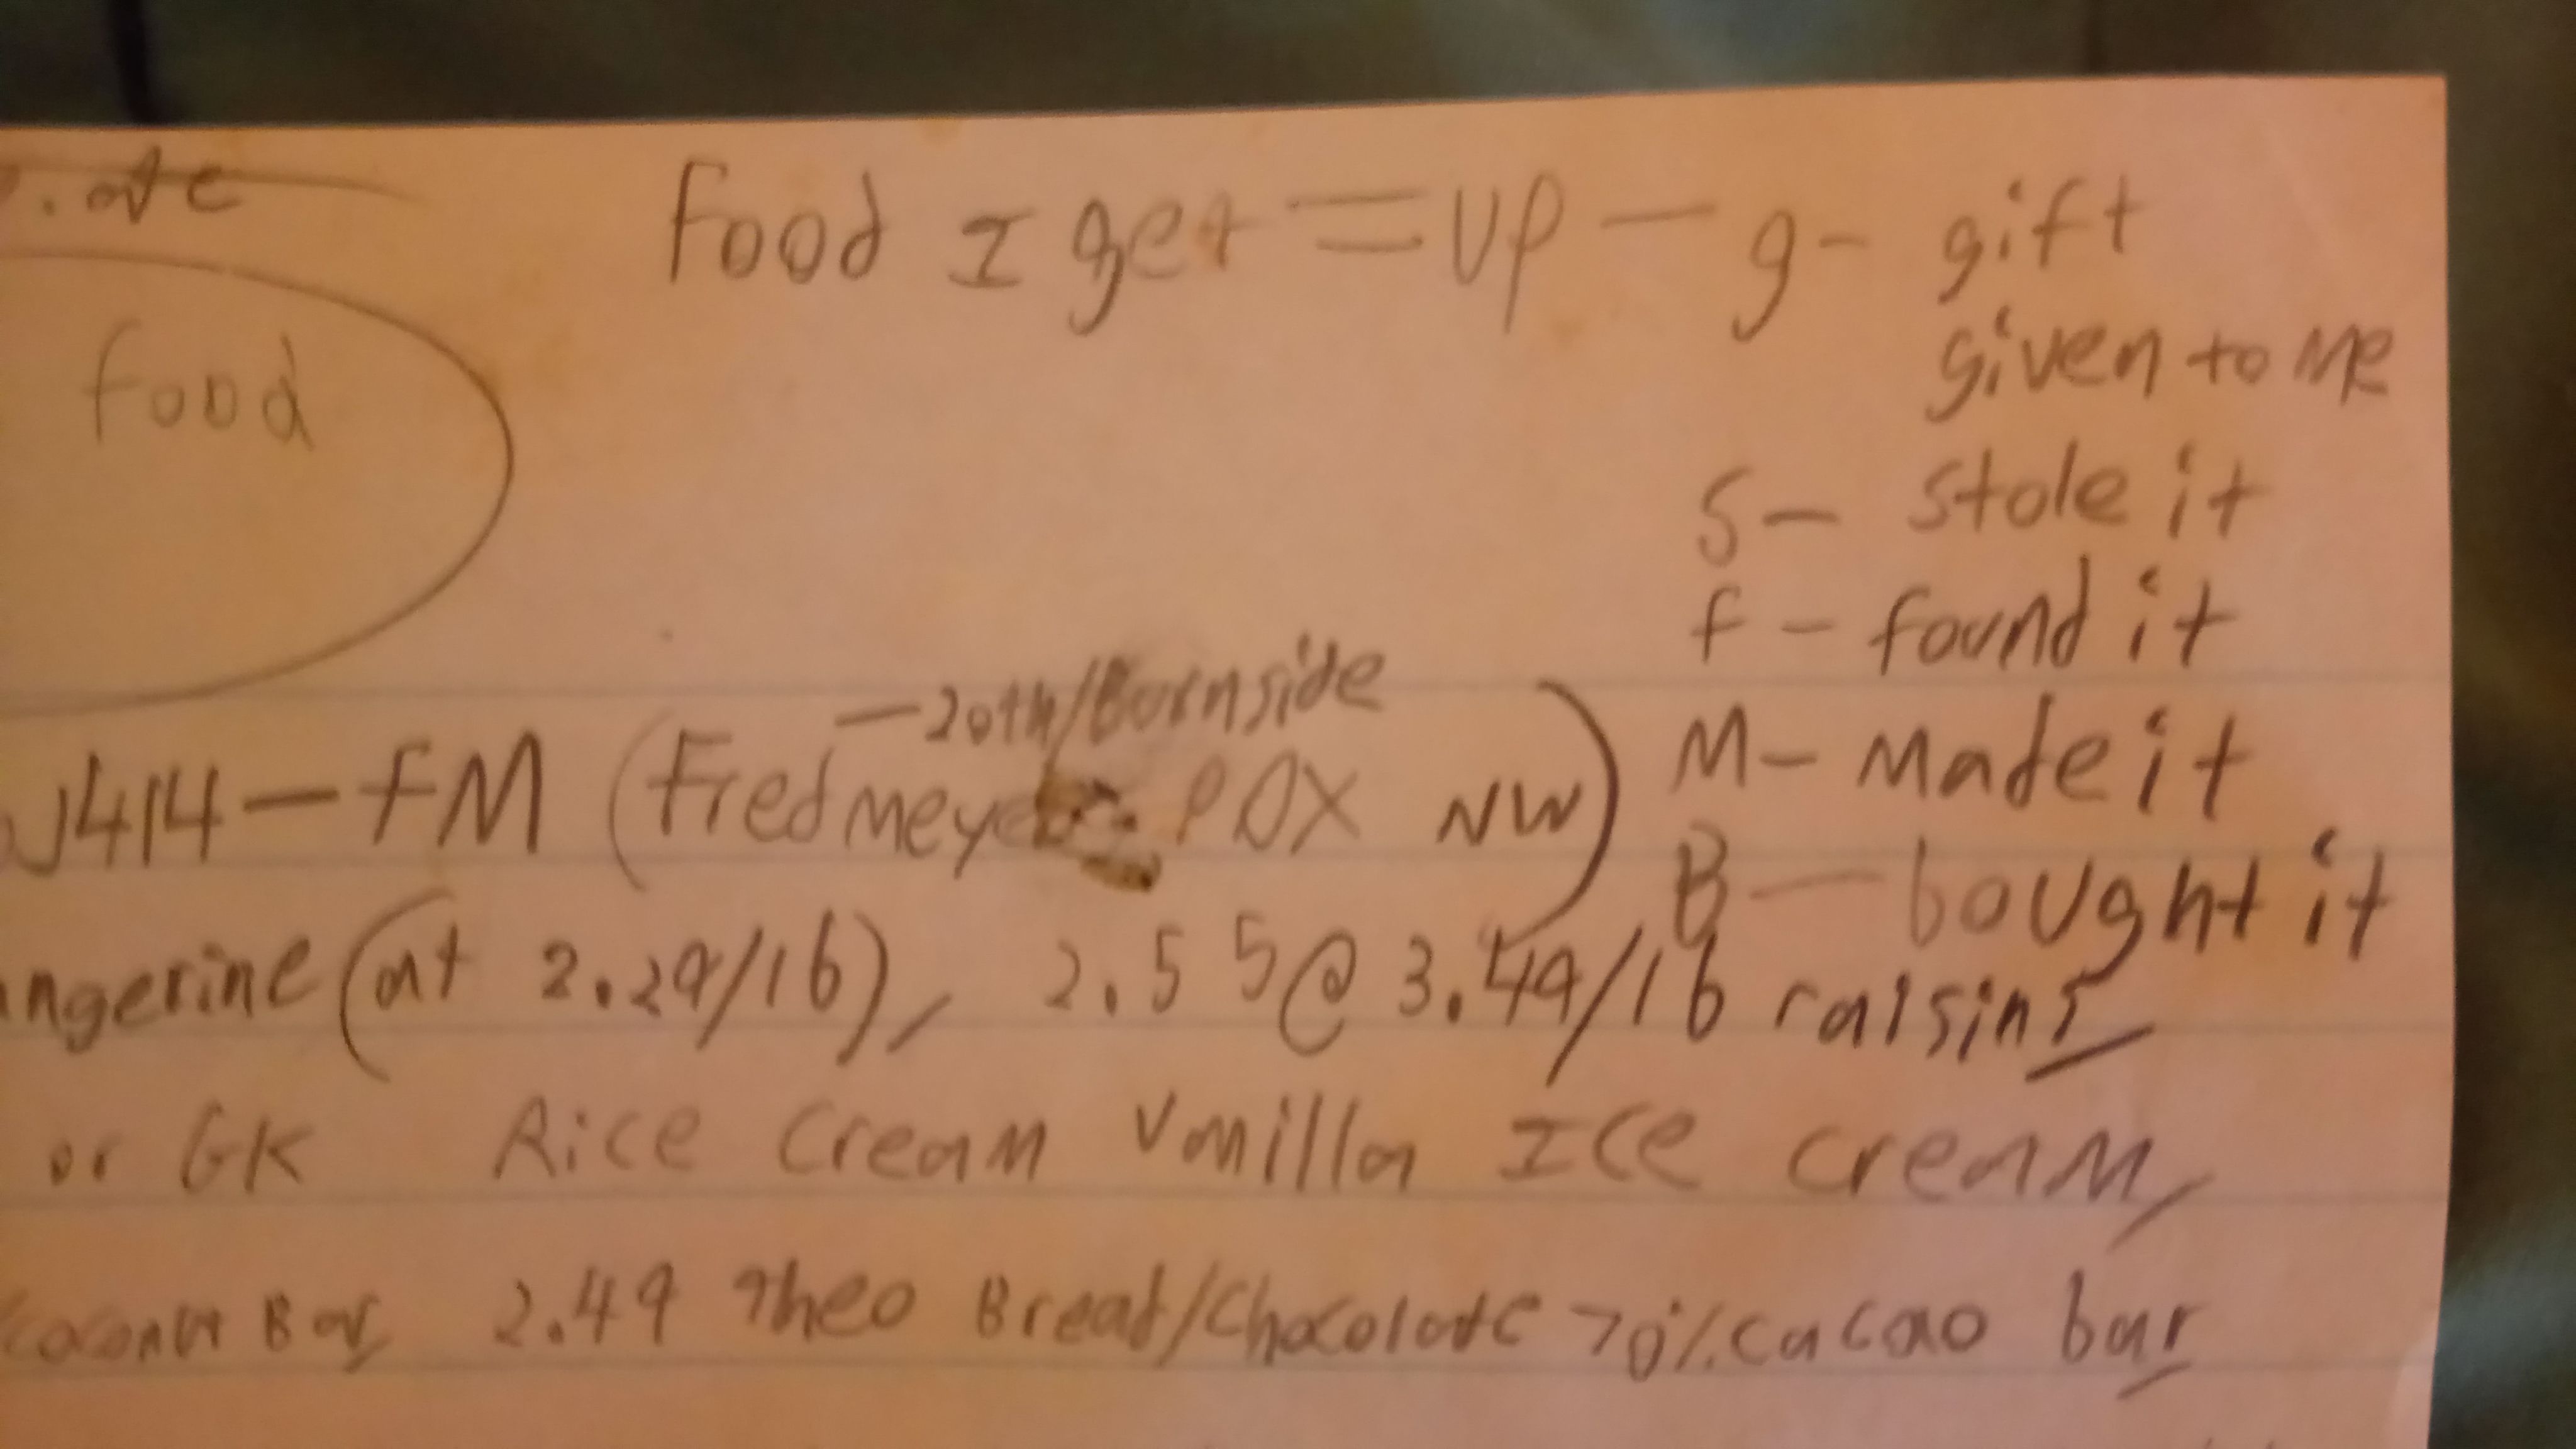 Food I get = up - g - gift
food
given to me
S - stole it
f - found it
- 20th/Burnside
1414 - FM (Fred Meyer - PDX NW)
M - Made it
B - bought it
ngerine (at 2.29/lb), 2.55 @ 3.49/lb raisins,
or GK Rice Cream Vanilla Ice Cream,
Coconut Bar, 2.49 Theo Bread/Chocolate 70% cacao bar,